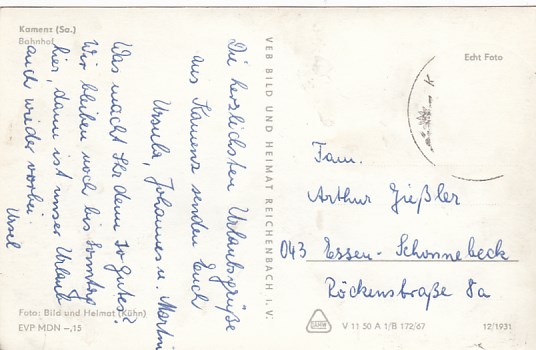 Kamenz (Sa.)
Bahnhof
Die herzlichsten Urlaubsgrüße
aus Kamenz senden Euch
Ursula, Johannes u. Martin
Was macht Ihr denn so gutes?
Wir bleiben noch bis Sonntag
hier, dann ist unser Urlaub
auch wieder vorbei.
Ursel
Foto: Bild und Heimat (Kühn)
EVP MDN –,15
VEB BILD UND HEIMAT REICHENBACH I. V.
Echt Foto
Fam.
Arthur Gießler
043 Essen-Schonnebeck
Röckenstraße 8a
V 11 50 A 1/B 172/67
12/1931